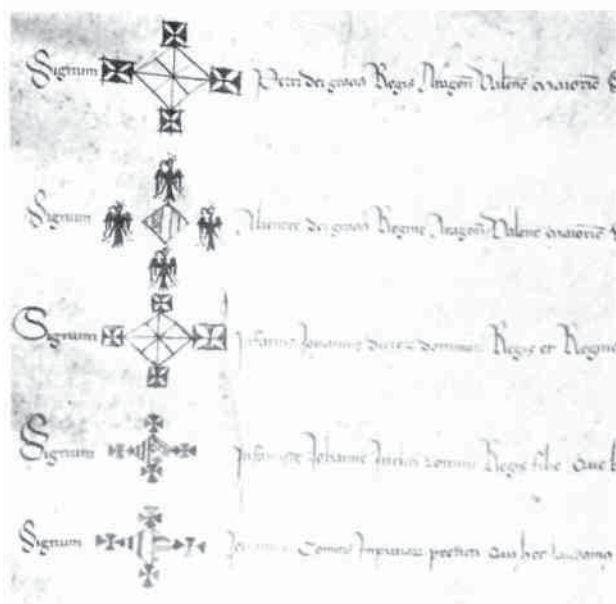 Signum Petri dei gracia Regis Aragon Valenc Maioric
Signum Alienore dei gracia Regine Aragon Valenc Maioric
Signum Infantis Johannis dictorum dominorum Regis et Regine
Signum Infantisse Johanne dicti domini Regis filie que
Signum Johannis Comitis Impuriarum predicti qui hec laudamus